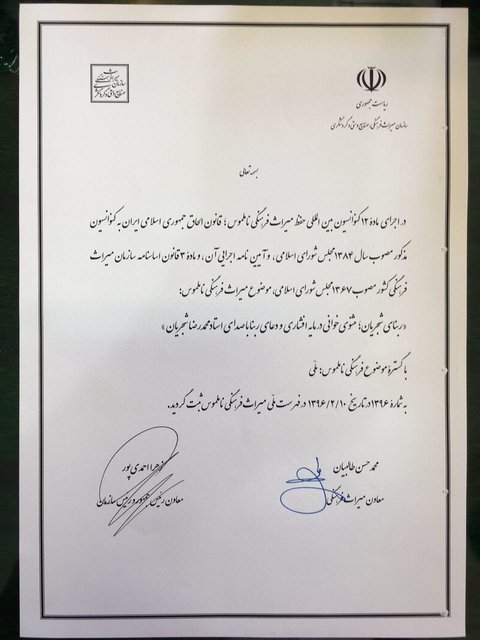 ریاست جمهوری
سازمان میراث فرهنگی، صنایع دستی و گردشگری
بسمه تعالی
در اجرای مادهٔ ۱۲ کنوانسیون بین المللی حفظ میراث فرهنگی ناملموس؛ قانون الحاق جمهوری اسلامی ایران به کنوانسیون
مذکور مصوب سال ۱۳۸۴ مجلس شورای اسلامی، و آیین نامه اجرایی آن، و مادهٔ ۳ قانون اساسنامه سازمان میراث
فرهنگی کشور مصوب ۱۳۶۷ مجلس شورای اسلامی، موضوع میراث فرهنگی ناملموس:
«ربنای شجریان؛ مثنوی خوانی در مایه افشاری و دعای ربنا با صدای استاد محمدرضا شجریان»
با گسترهٔ موضوع فرهنگی ناملموس: ملّی
به شمارهٔ ۱۳۹۶ در تاریخ ۱۳۹۶/۲/۱۰ در فهرست ملّی میراث فرهنگی ناملموس ثبت گردید.
محمد حسن طالبیان
معاون میراث فرهنگی
زهرا احمدی پور
معاون رئیس جمهور و رئیس سازمان